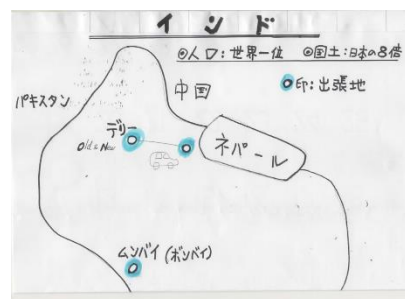 インド
◎人口:世界一位 ◎国土:日本の8倍
中国
◎印:出張地
パキスタン
デリー
Old & New
ネパール
ムンバイ(ボンベイ)